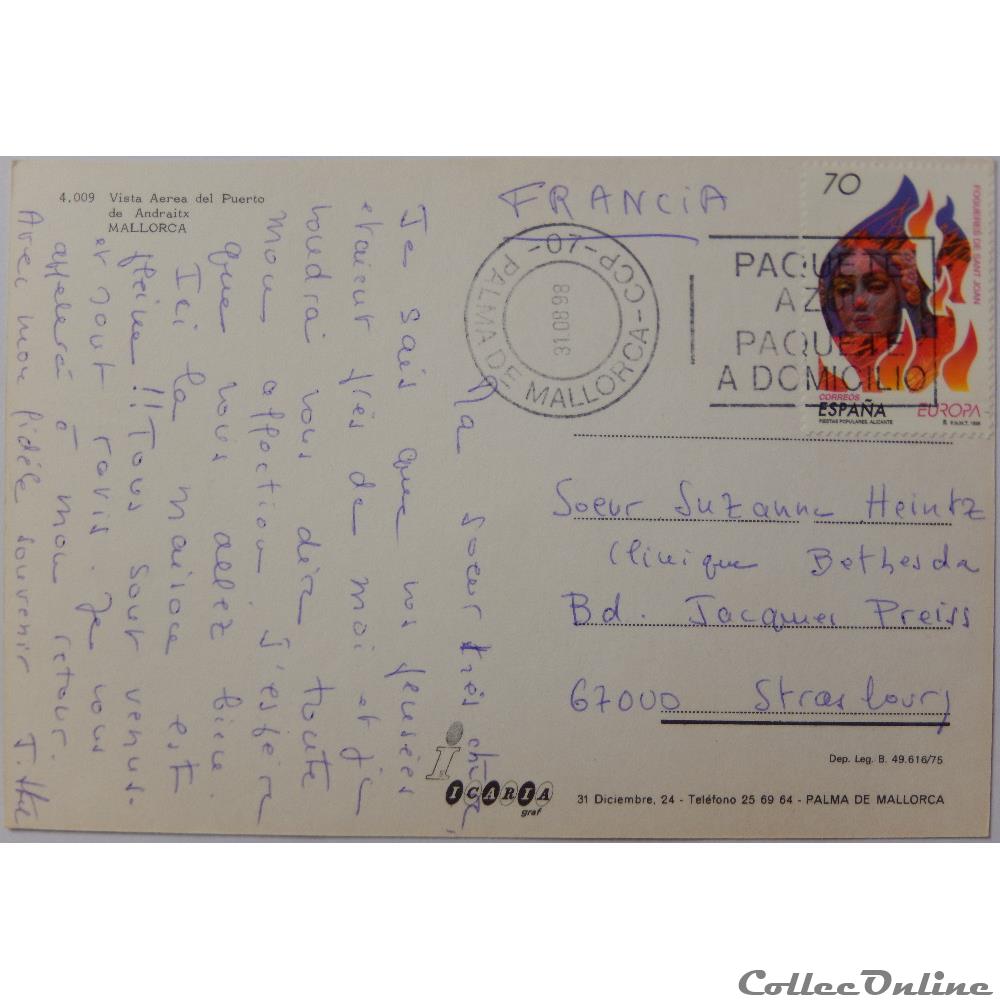 4.009 Vista Aerea del Puerto
de Andraitx
MALLORCA
Ma soeur très chère,
Je sais que vos pensées
étaient près de moi et je
voudrai vous dire toute
mon affection. J'espère
que vous allez bien.
Ici la maison est
pleine !! Tous sont venus
et sont ravis. Je vous
appelerai à mon retour.
Avec mon fidèle souvenir
FRANCIA
PALMA DE MALLORCA-CCP
-07-
310898
PAQUETE
AZUL
PAQUETE
A DOMICILIO
70
FOGUERES DE SANT JOAN
CORREOS
ESPAÑA
EUROPA
FIESTAS POPULARES. ALICANTE
Soeur Suzanne Heintz
Clinique Bethesda
Bd. Jacques Preiss
67000 Strasbourg
Dep. Leg. B. 49.616/75
i
ICARIA
graf
31 Diciembre, 24 - Teléfono 25 69 64 - PALMA DE MALLORCA
CollecOnline